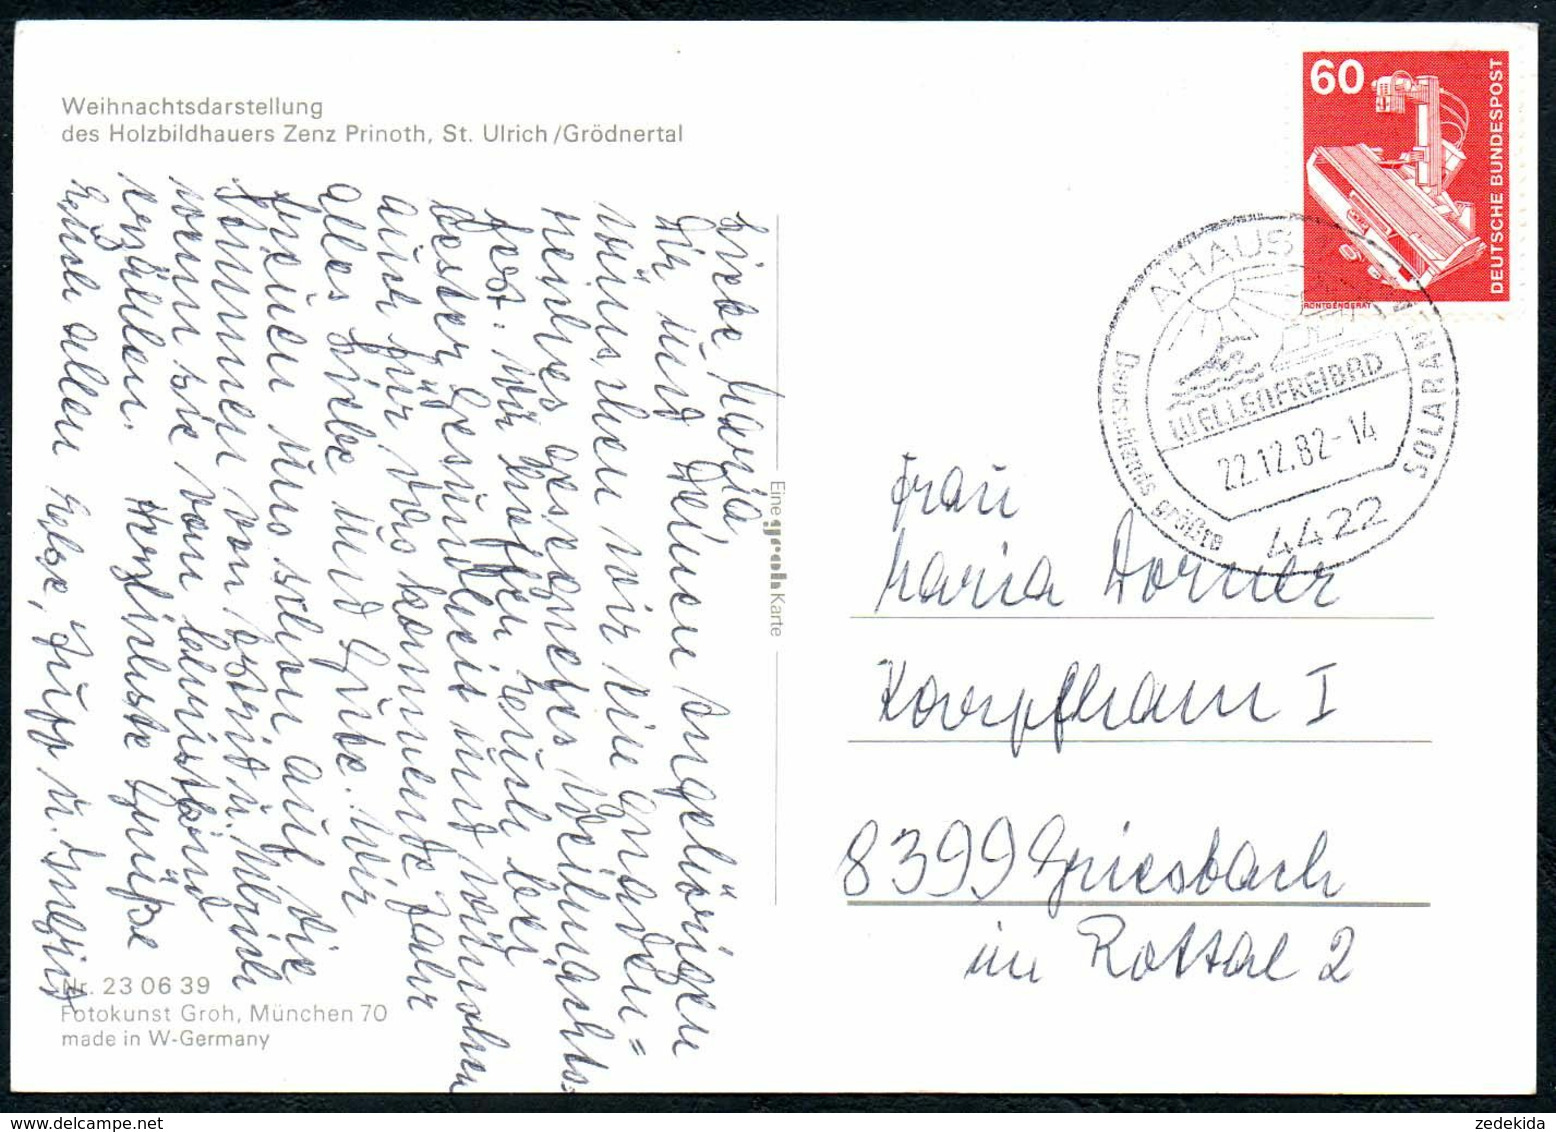 Weihnachtsdarstellung
des Holzbildhauers Zenz Prinoth, St. Ulrich/Grödnertal
Liebe Maria,
Dir und Deinen Angehörigen
wünschen wir ein gnaden=
reiches gesegnetes Weihnachts-
fest. Wir hoffen Euch bei
bester Gesundheit und wünschen
auch für das kommende Jahr
alles Liebe und Gute. Wir
freuen uns schon auf die
Kommen von u. Ulrich
wenn sie vom
erzählen. Herzlichste Grüße
Euch allen Else, Jupp u. Ingrid
Nr. 23 06 39
Fotokunst Groh, München 70
made in W-Germany
Eine groh Karte
60
DEUTSCHE BUNDESPOST
RÖNTGENGERÄT
AHAUS
Deutschlands größte
SOLARAN
WELLENFREIBAD
22.12.82-14
4422
Frau
Maria Dorner
Karpfham I
8399 Griesbach
im Rottal 2
zedekida